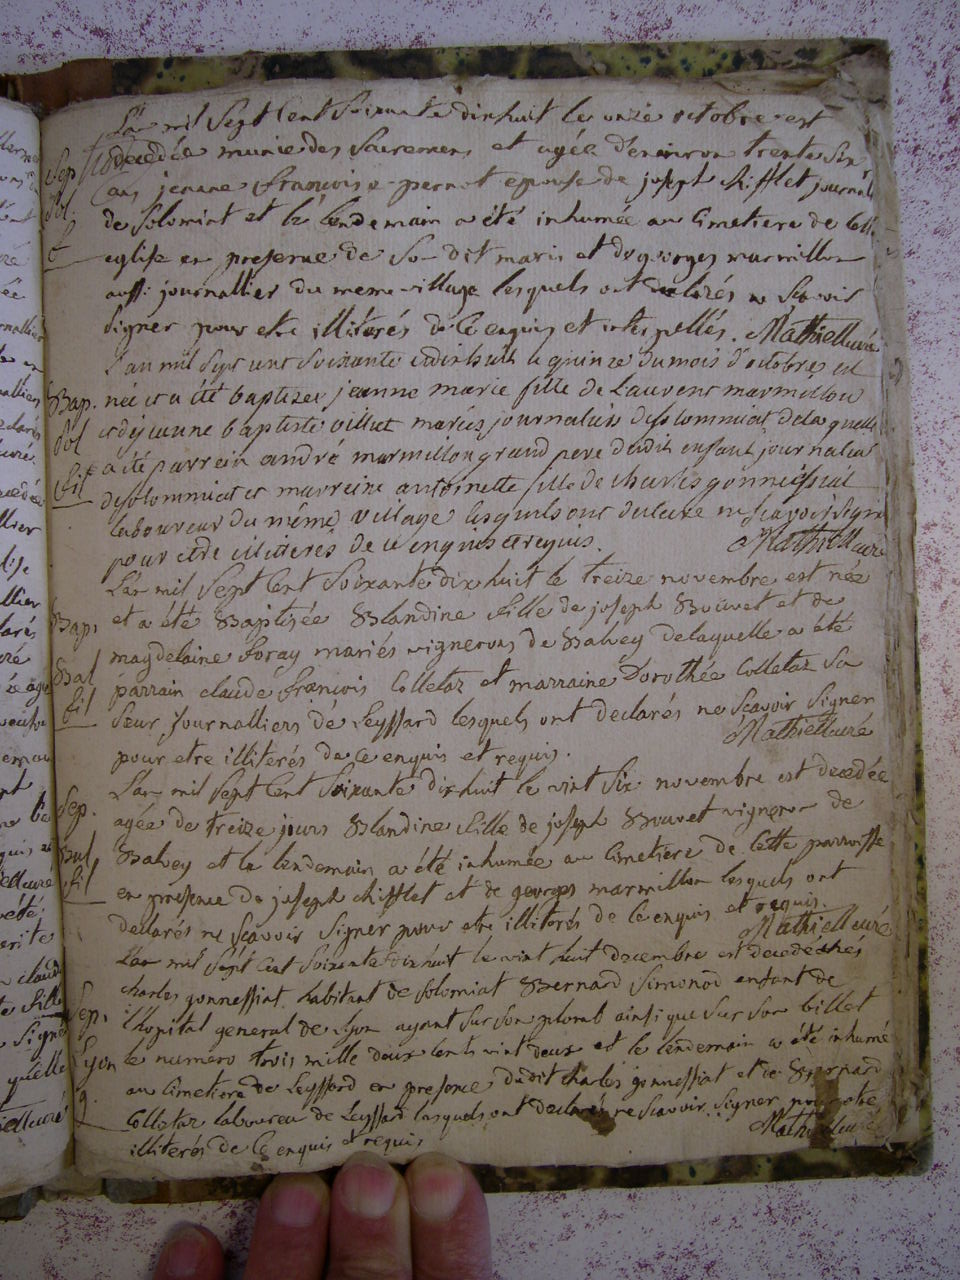 L'an mil Sept Cent Soixante dixhuit le onze octobre est
Sep. decedée munie des Sacremens et agée d'environ trente Six
Sol. ans jeanne françoise pernot epouse de joseph chifflet journal
f de Solomiat et le lendemain a été inhumée au Cimetiere de Cette
eglise en presence de Son dit maris et de georges marmillon
aussi journallier du meme village lesquels ont declarés ne Scavoir
Signer pour etre illiterés de Ce enquis et interpellés. Mathieu curé
L'an mil sept cent soixante et dixhuit le quinze du mois d'octobre est
Bap. née et a été baptizée jeanne marie fille de Laurent marmillon
Sol et de jeanne baptiste villiet mariés journaliers de solommiat de laquelle
fil a été parrein andré marmillon grand pere dudit enfant journalier
de solommiat et marreine antoinette fille de charles gonnessiat
laboureur du même village lesquels ont declaré ne scavoir signer
pour etre illitterés de ce enquis et requis. Mathieu curé
L'an mil Sept Cent Soixante dix huit le treize novembre est née
Bap. et a été Baptisée Blandine fille de joseph Bouvet et de
magdelaine foray mariés vignerons de Balvey de laquelle a été
Bal parrain claude françois Colletaz et marraine Dorothée Colletaz Sa
fil Seur journalliers de Leyssard lesquels ont declarés ne Scavoir Signer
pour etre illiterés de Ce enquis et requis. Mathieu curé
L'an mil Sept Cent Soixante dixhuit le vint Six novembre est decedée
Sep. agée de treize jours Blandine fille de joseph Bouvet vigneron de
Bal Balvey et le lendemain a été inhumée au Cimetiere de Cette parroisse
fil en presence de joseph chifflet et de georges marmillon lesquels ont
declarés ne Scavoir Signer pour etre illiterés de Ce enquis et requis. Mathieu curé
L'an mil Sept Cent Soixante dixhuit le vint huit decembre est decedé chés
charles gonnessiat habitant de Solomiat Bernard Simonod enfant de
Sep. l'hopital general de Lyon ayant Sur Son plomb ainsi que Sur Son billet
Lyon le numero trois mille deux Cents vint deux et le lendemain a été inhumé
g. au Cimetiere de Leyssard en presence dudit charles gonnessiat et de Bernard
Colletaz laboureur de Leyssard lesquels ont declarés ne Scavoir Signer pour etre
illiterés de Ce enquis et requis Mathieu curé